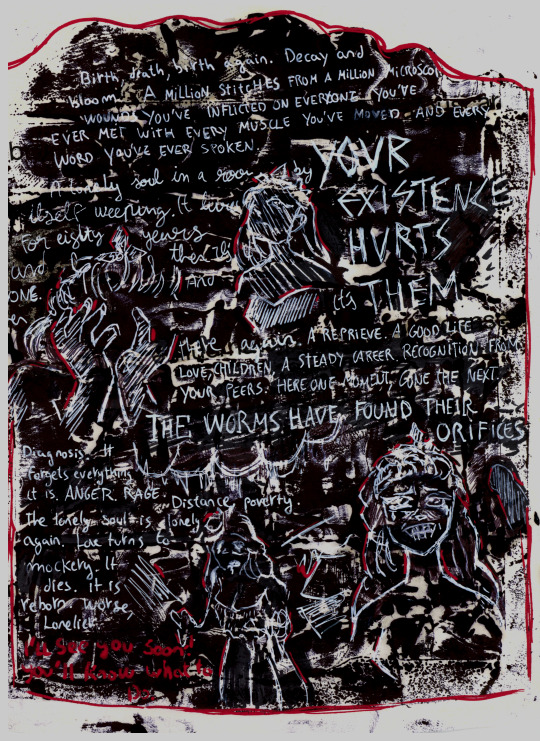 Birth, death, birth again. Decay and
bloom. A MILLION STITCHES FROM A MILLION MICROSCOPIC
WOUNDS YOU'VE INFLICTED ON EVERYONE YOU'VE
EVER MET WITH EVERY MUSCLE YOU'VE MOVED AND EVERY
WORD YOU'VE EVER SPOKEN.
YOUR
EXISTENCE
HURTS
THEM
A lonely soul in a room by
itself weeping. It
for eighty years
and then it
ONE. AND
it's
there again. A REPRIEVE. A GOOD LIFE
LOVE, CHILDREN, A STEADY CAREER RECOGNITION FROM
YOUR PEERS. HERE ONE MOMENT, GONE THE NEXT.
THE WORMS HAVE FOUND THEIR
ORIFICES
Diagnosis. It
forgets everything
it is. ANGER. RAGE. Distance poverty
The lonely soul is lonely
again. Love turns to
mockery. It
dies. it is
reborn worse,
Lonelier
I'll see you soon!
you'll know what to
Do